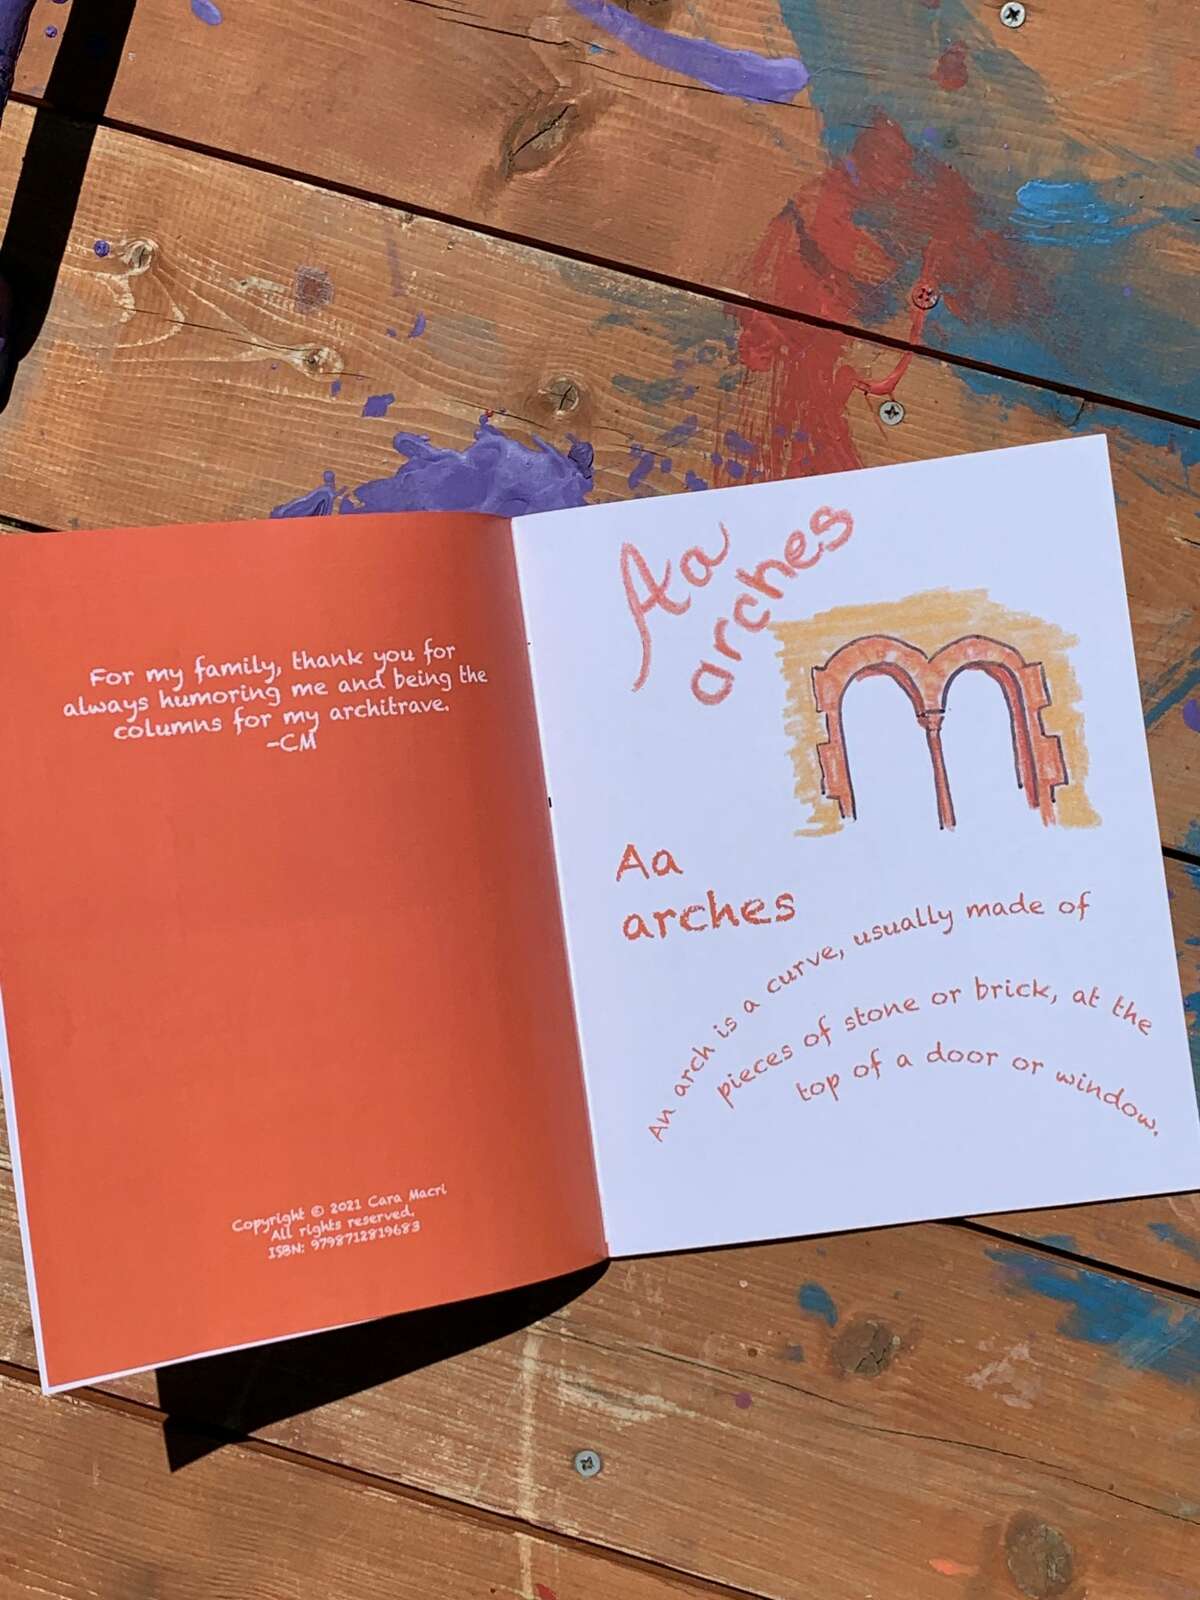 For my family, thank you for
always humoring me and being the
columns for my architrave.
-CM
Copyright © 2021 Cara Macri
All rights reserved.
ISBN: 9798712819683
Aa
arches
Aa
arches
An arch is a curve, usually made of
pieces of stone or brick, at the
top of a door or window.